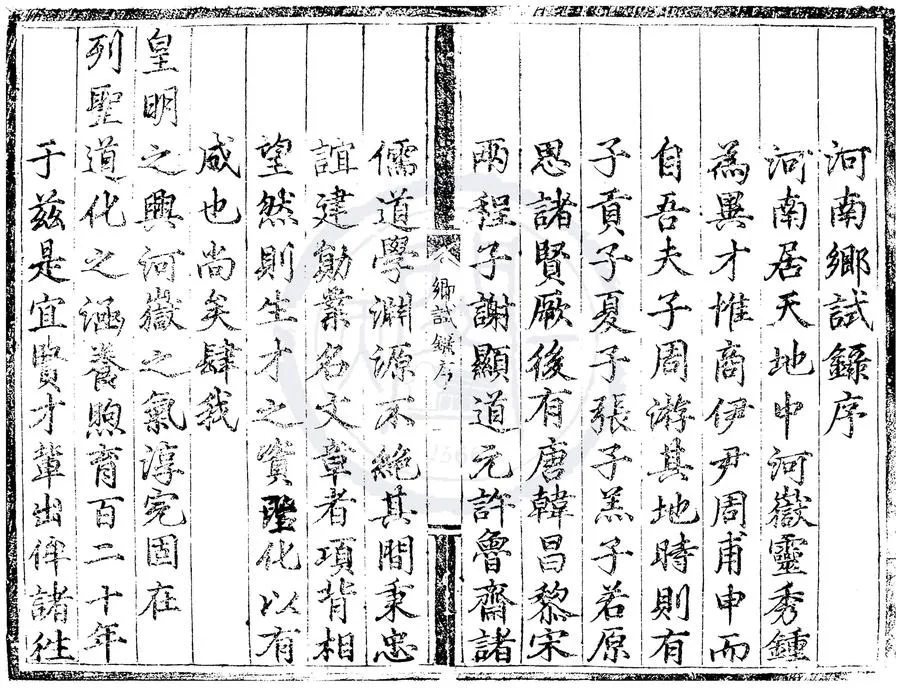 河南鄉試錄序
河南居天地中河嶽靈秀鍾
為異才惟商伊尹周甫申而
自吾夫子周游其地時則有
子貢子夏子張子羔子若原
思諸賢厥後有唐韓昌黎宋
兩程子謝顯道元許魯齋諸
鄉試錄序
儒道學淵源不絕其間秉忠
誼建勳業名文章者項背相
望然則生才之實聖化以有
咸也尚矣肆我
皇明之興河嶽之氣淳完固在
列聖道化之涵養煦育百二十年
于茲是宜賢才輩出俾諸往